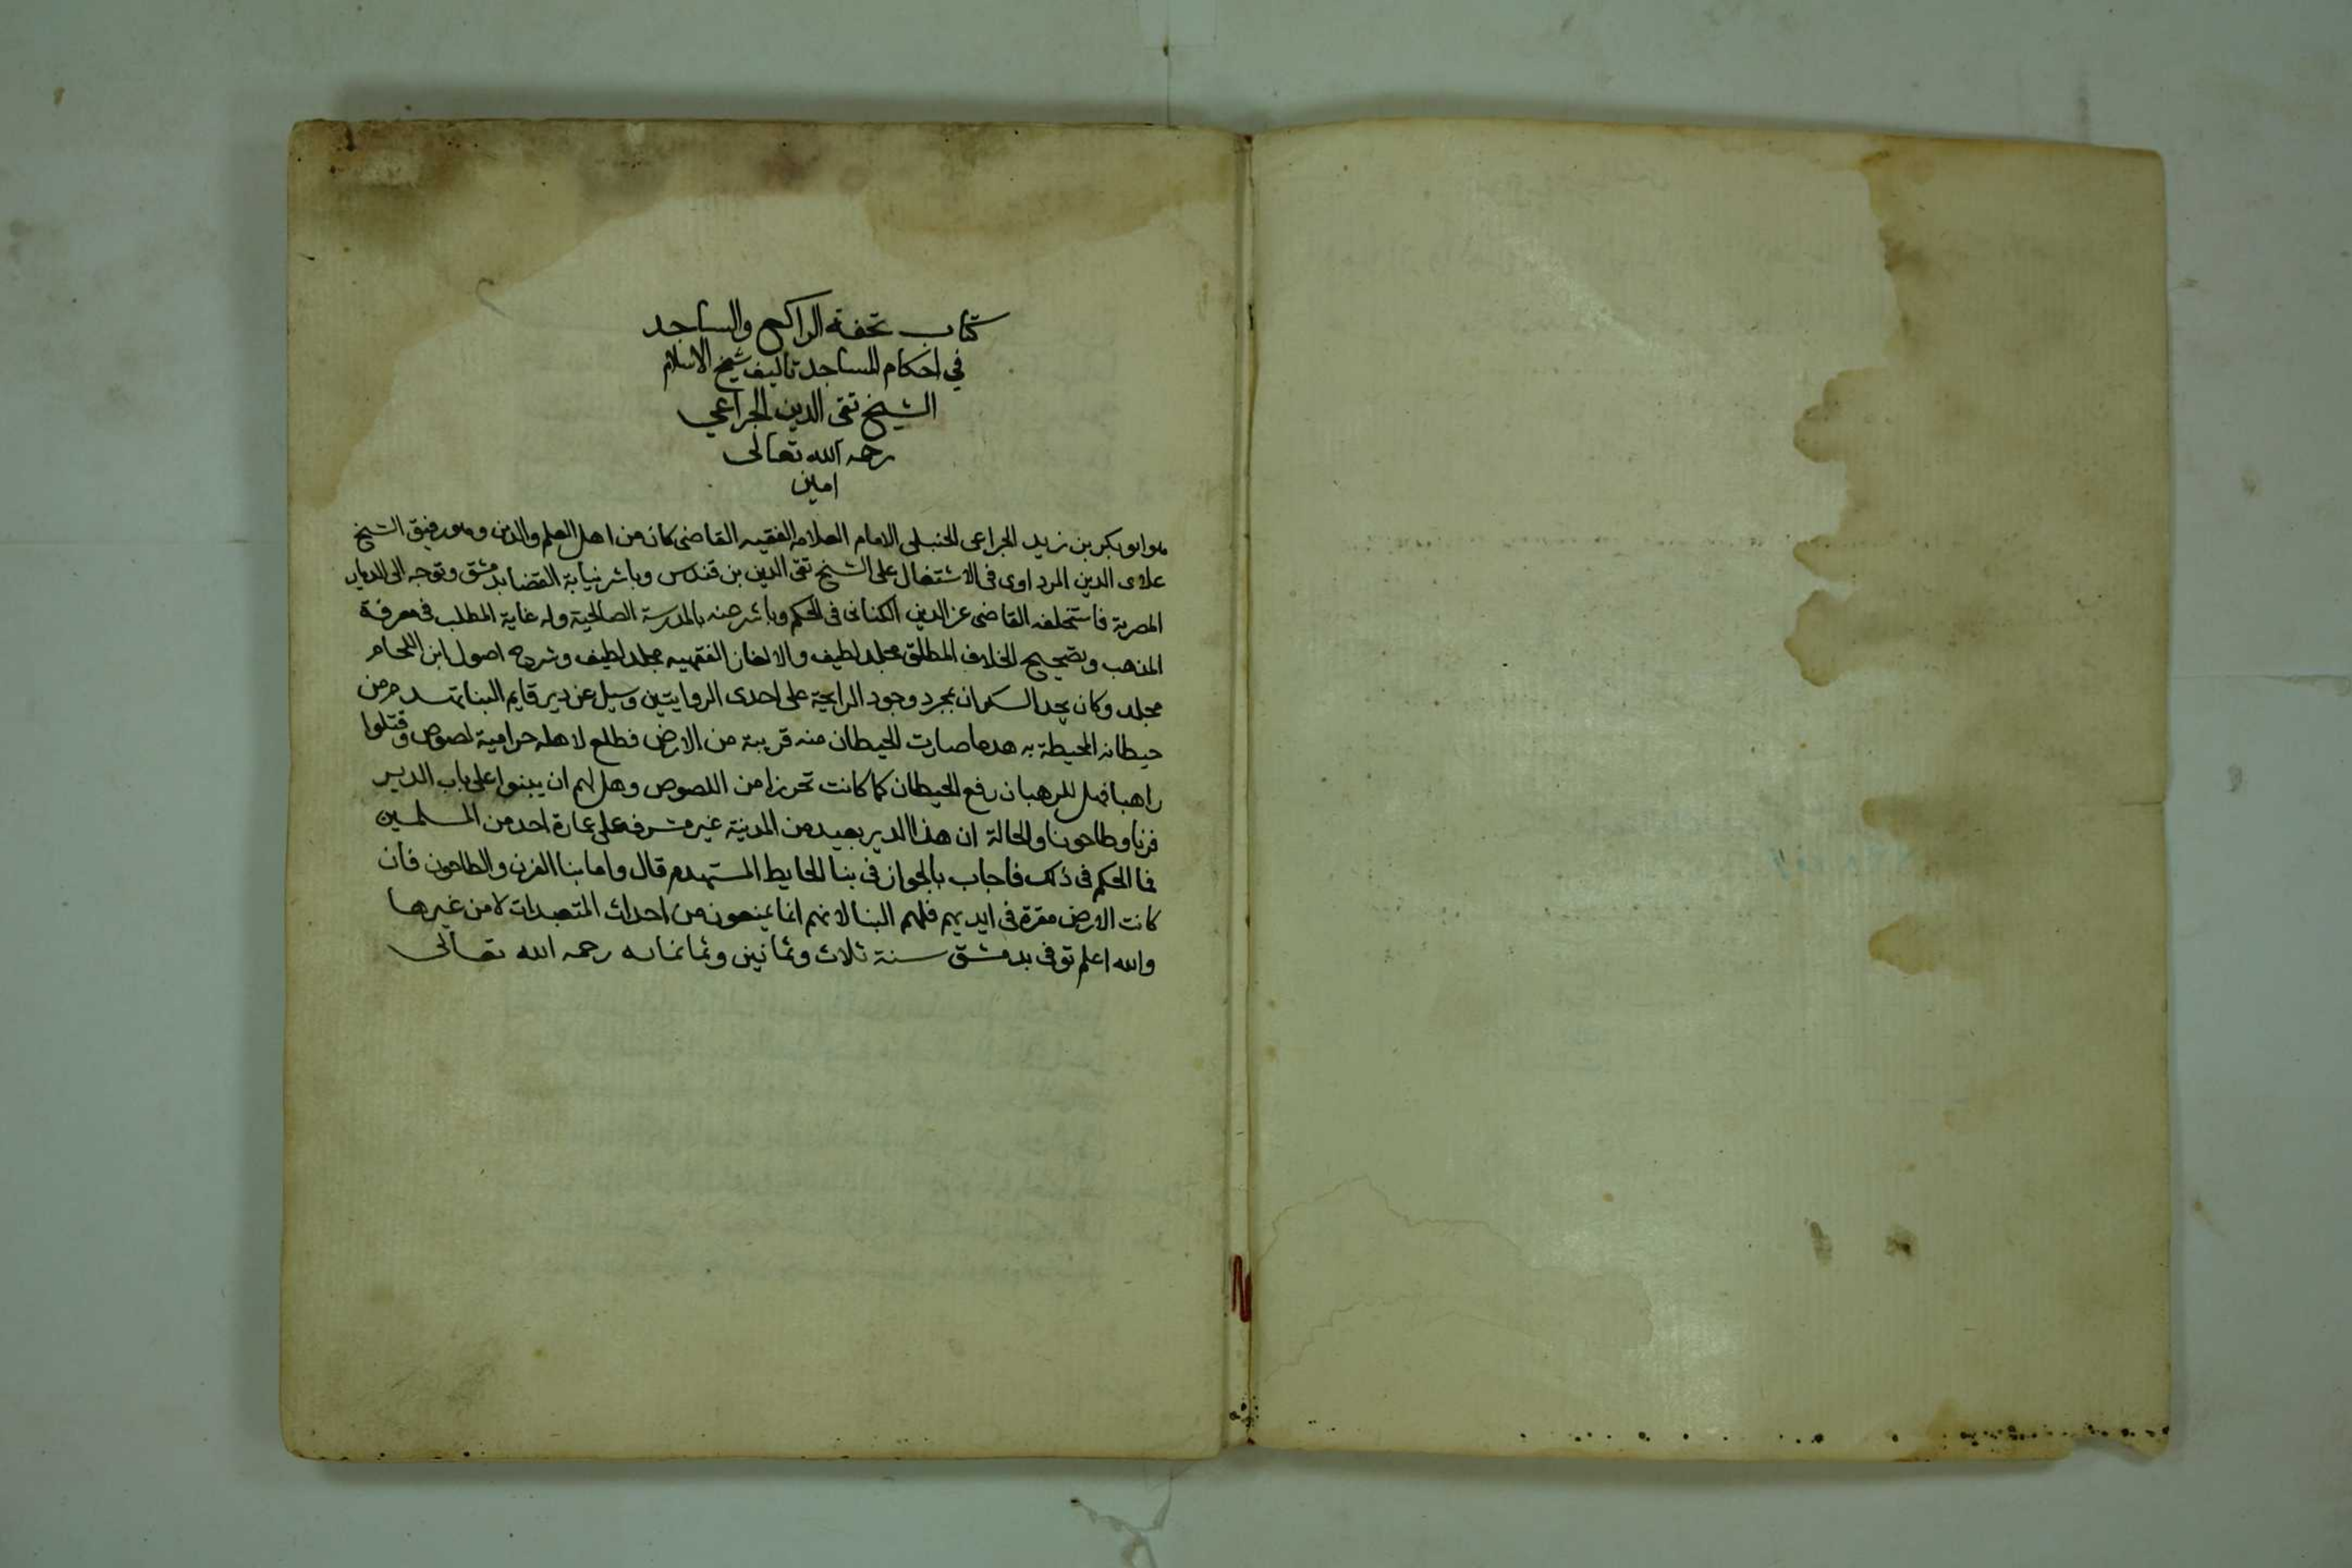 كتاب تحفة الراكع والساجد
في احكام المساجد تاليف شيخ الاسلام
الشيخ تقى الدين الجراعي
رحمه الله تعالى
امين
هو ابو بكر بن زيد الجراعى الحنبلى الامام العلامه الفقيه القاضى كان من اهل العلم والدين وهو رفيق الشيخ
علاى الدين المرداوى فى الاشتغال على الشيخ تقى الدين بن قندس وباشر نيابة القضا بدمشق وتوجه الى الديار
المصرية فاستخلفه القاضى عز الدين الكنانى فى الحكم وباشر عنه بالمدرسة الصالحية وله غاية المطلب فى معرفة
المذهب وتصحيح الخلاف المطلق مجلد لطيف والالغاز الفقهيه مجلد لطيف وشرح اصول ابن اللحام
مجلد وكان يحد السكران بمجرد وجود الرايحة على احدى الروايتين وسيل عن دير قايم البنا تهدم من
حيطانه المحيطة به هدما صارت الحيطان منه قريبة من الارض فطلع لاهله حرامية لصوص وقتلوا
راهبا فهل للرهبان رفع الحيطان كما كانت تحرزا من اللصوص وهل لهم ان يبنوا على باب الدير
فرنا وطاحونا والحالة ان هذا الدير بعيد من المدنية غير مشرف على عمارة احد من المسلمين
فما الحكم فى ذلك فاجاب بالجواز فى بنا الحايط المستهدم قال واما بنا الفرن والطاحون فان
كانت الارض مقرة فى ايديهم فلهم البنا لانهم انما يمنعون من احداث المتعبدات لا من غيرها
والله اعلم توفى بدمشق سنة ثلاث وثمانين وثمانمايه رحمه الله تعالى